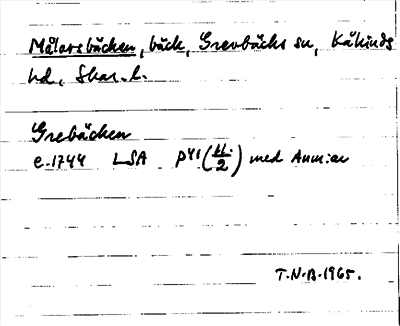 Målarsbäcken, bäck, Grevbäcks sn, Kåkinds
hd, Skar. l.
Grebäcken
e. 1744 LSA P41 (11/2) med Ann:ar
T.N.B. 1965.